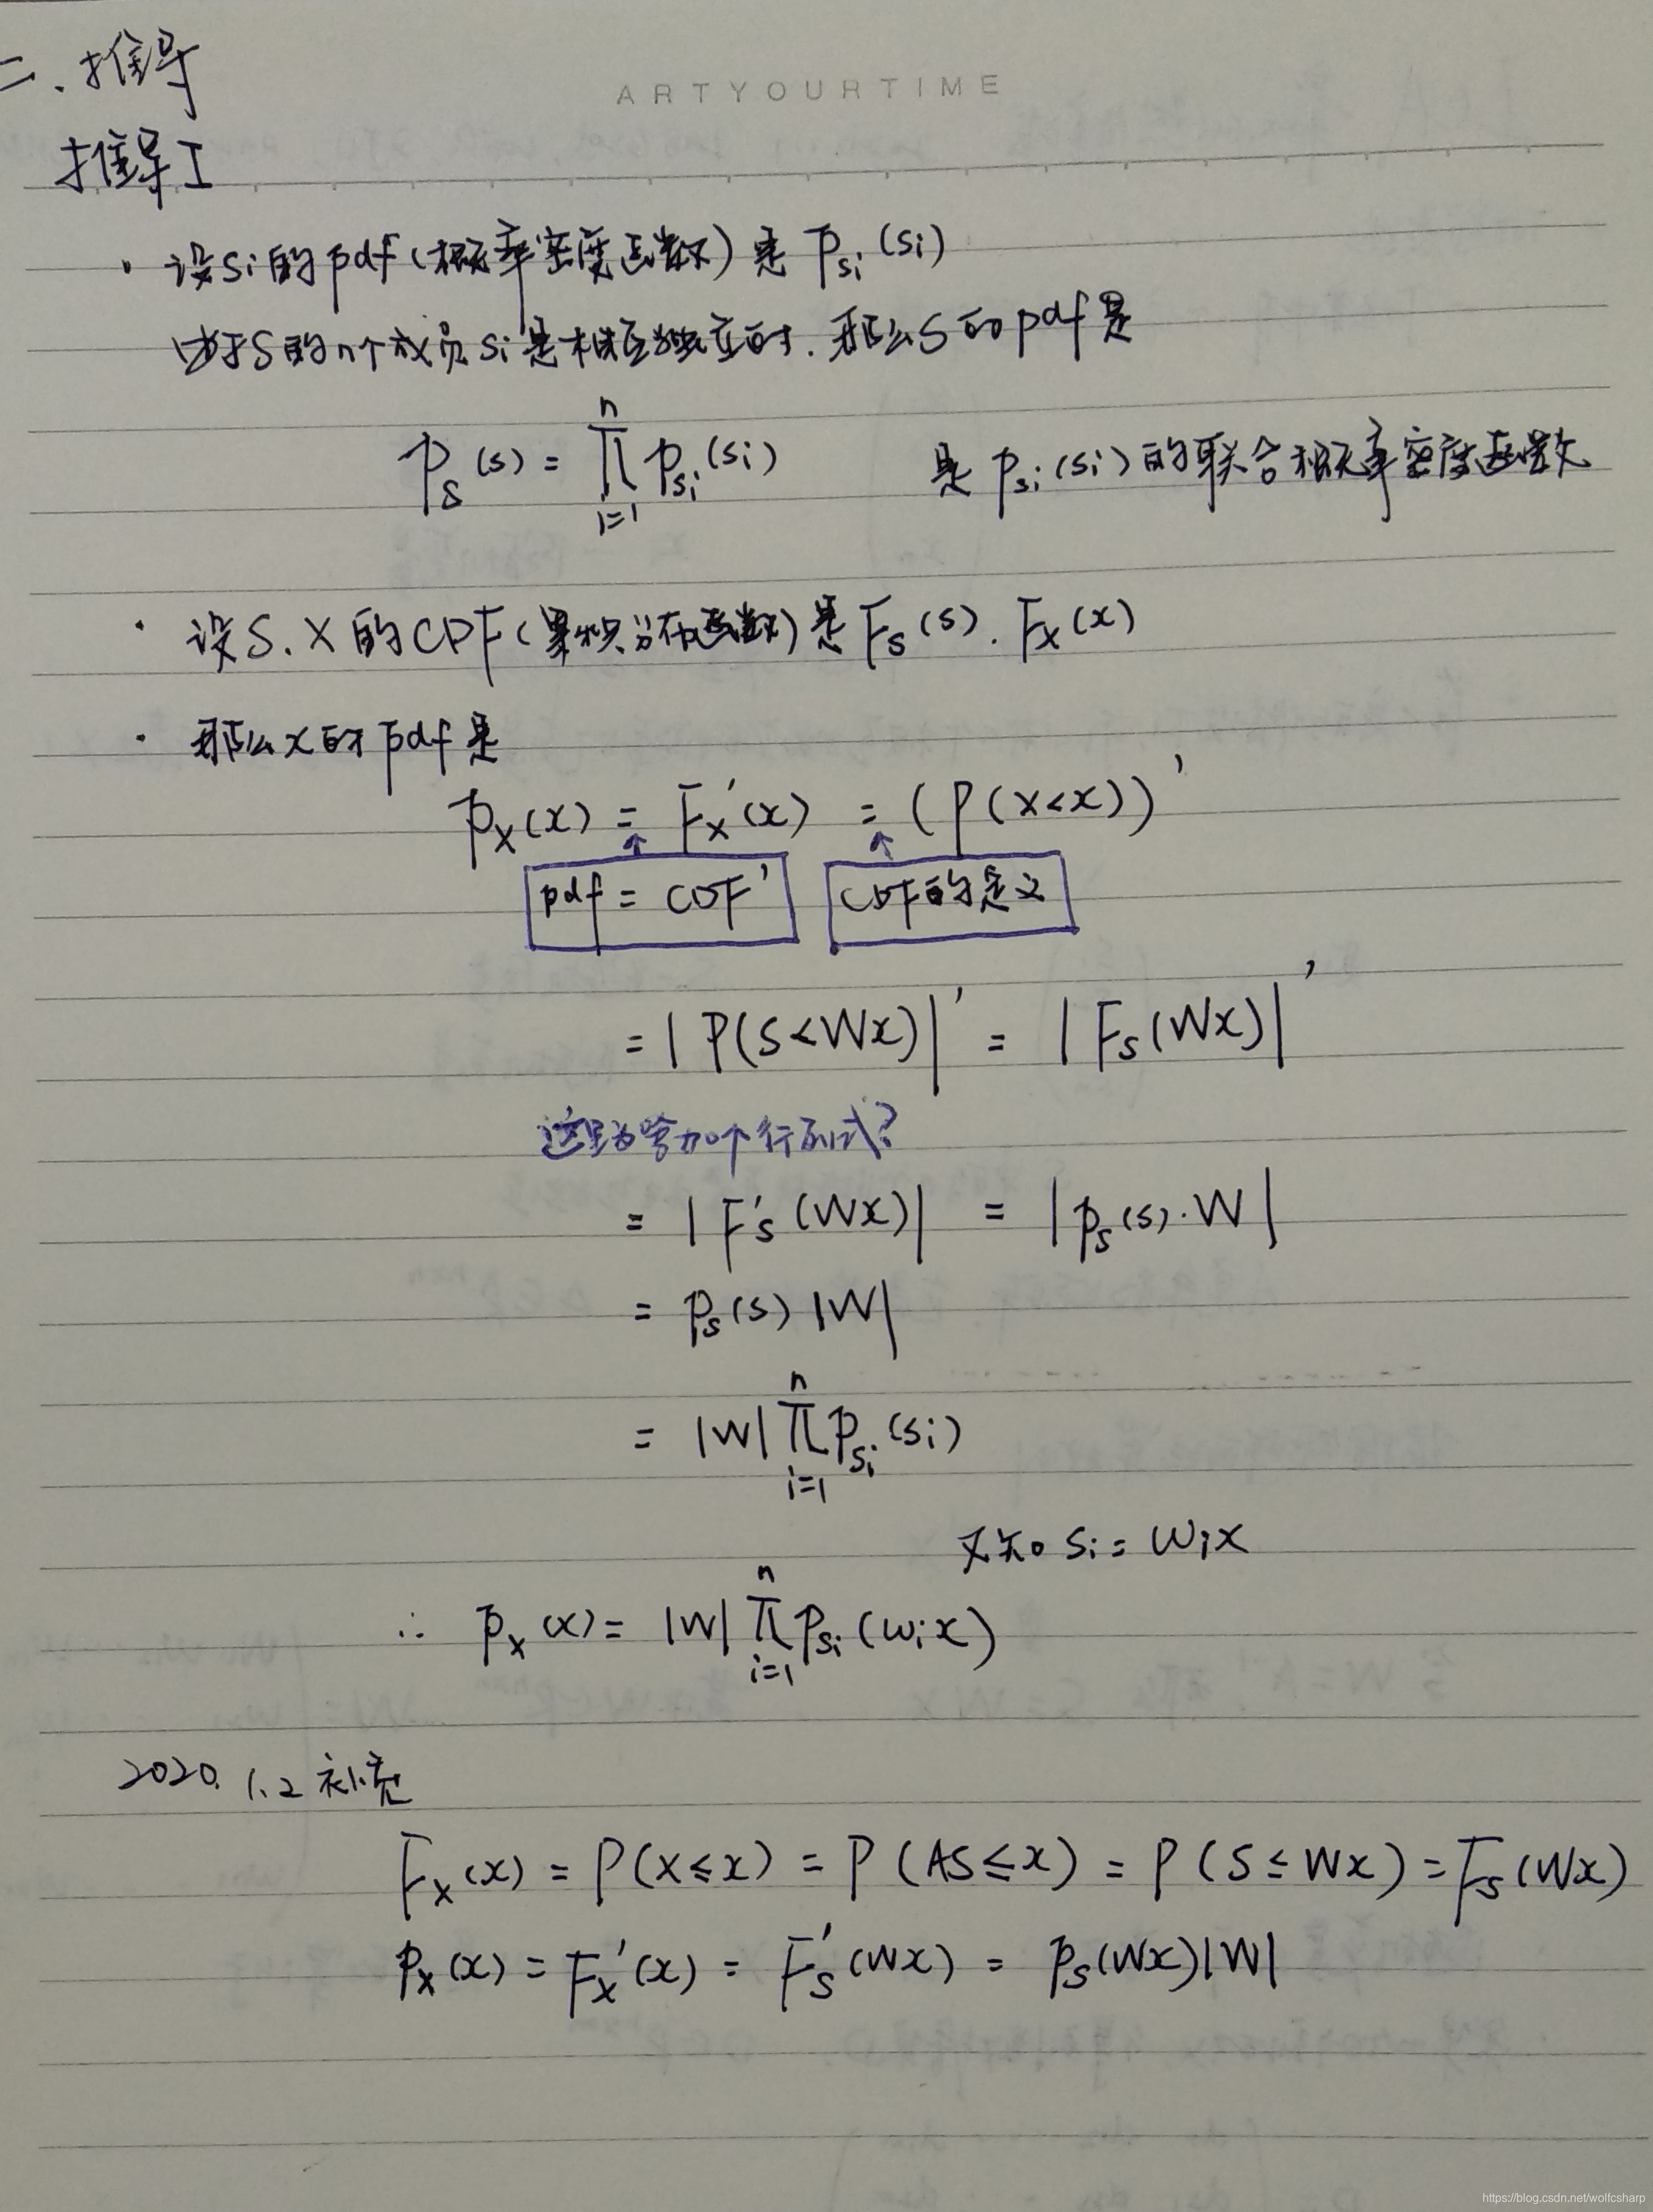 ARTYOURTIME
二、推导
推导I
· 设si的pdf(概率密度函数)是 p_{si}(si)
由于S的n个成员si是相互独立的.那么S的pdf是
p_s(s) = ∏_{i=1}^{n} p_{si}(si) 是 p_{si}(si)的联合概率密度函数
· 设S、X的CDF(累积分布函数)是F_s(s).F_X(x)
· 那么x的pdf是
p_X(x) = F_X'(x) = (P(X<x))'
pdf = CDF' CDF的定义
= |P(S<Wx)|' = |F_s(Wx)|'
这里为啥加个行列式?
= |F's(Wx)| = |p_s(s)·W|
= p_s(s)|W|
= |W| ∏_{i=1}^{n} p_{si}(si)
又知 si = wix
∴ p_x(x) = |W| ∏_{i=1}^{n} p_{si}(wix)
2020.1.2 补充
F_X(x) = P(X≤x) = P(AS≤x) = P(S≤Wx) = F_S(Wx)
p_X(x) = F_X'(x) = F_S'(Wx) = p_S(Wx)|W|
https://blog.csdn.net/wolfcsharp